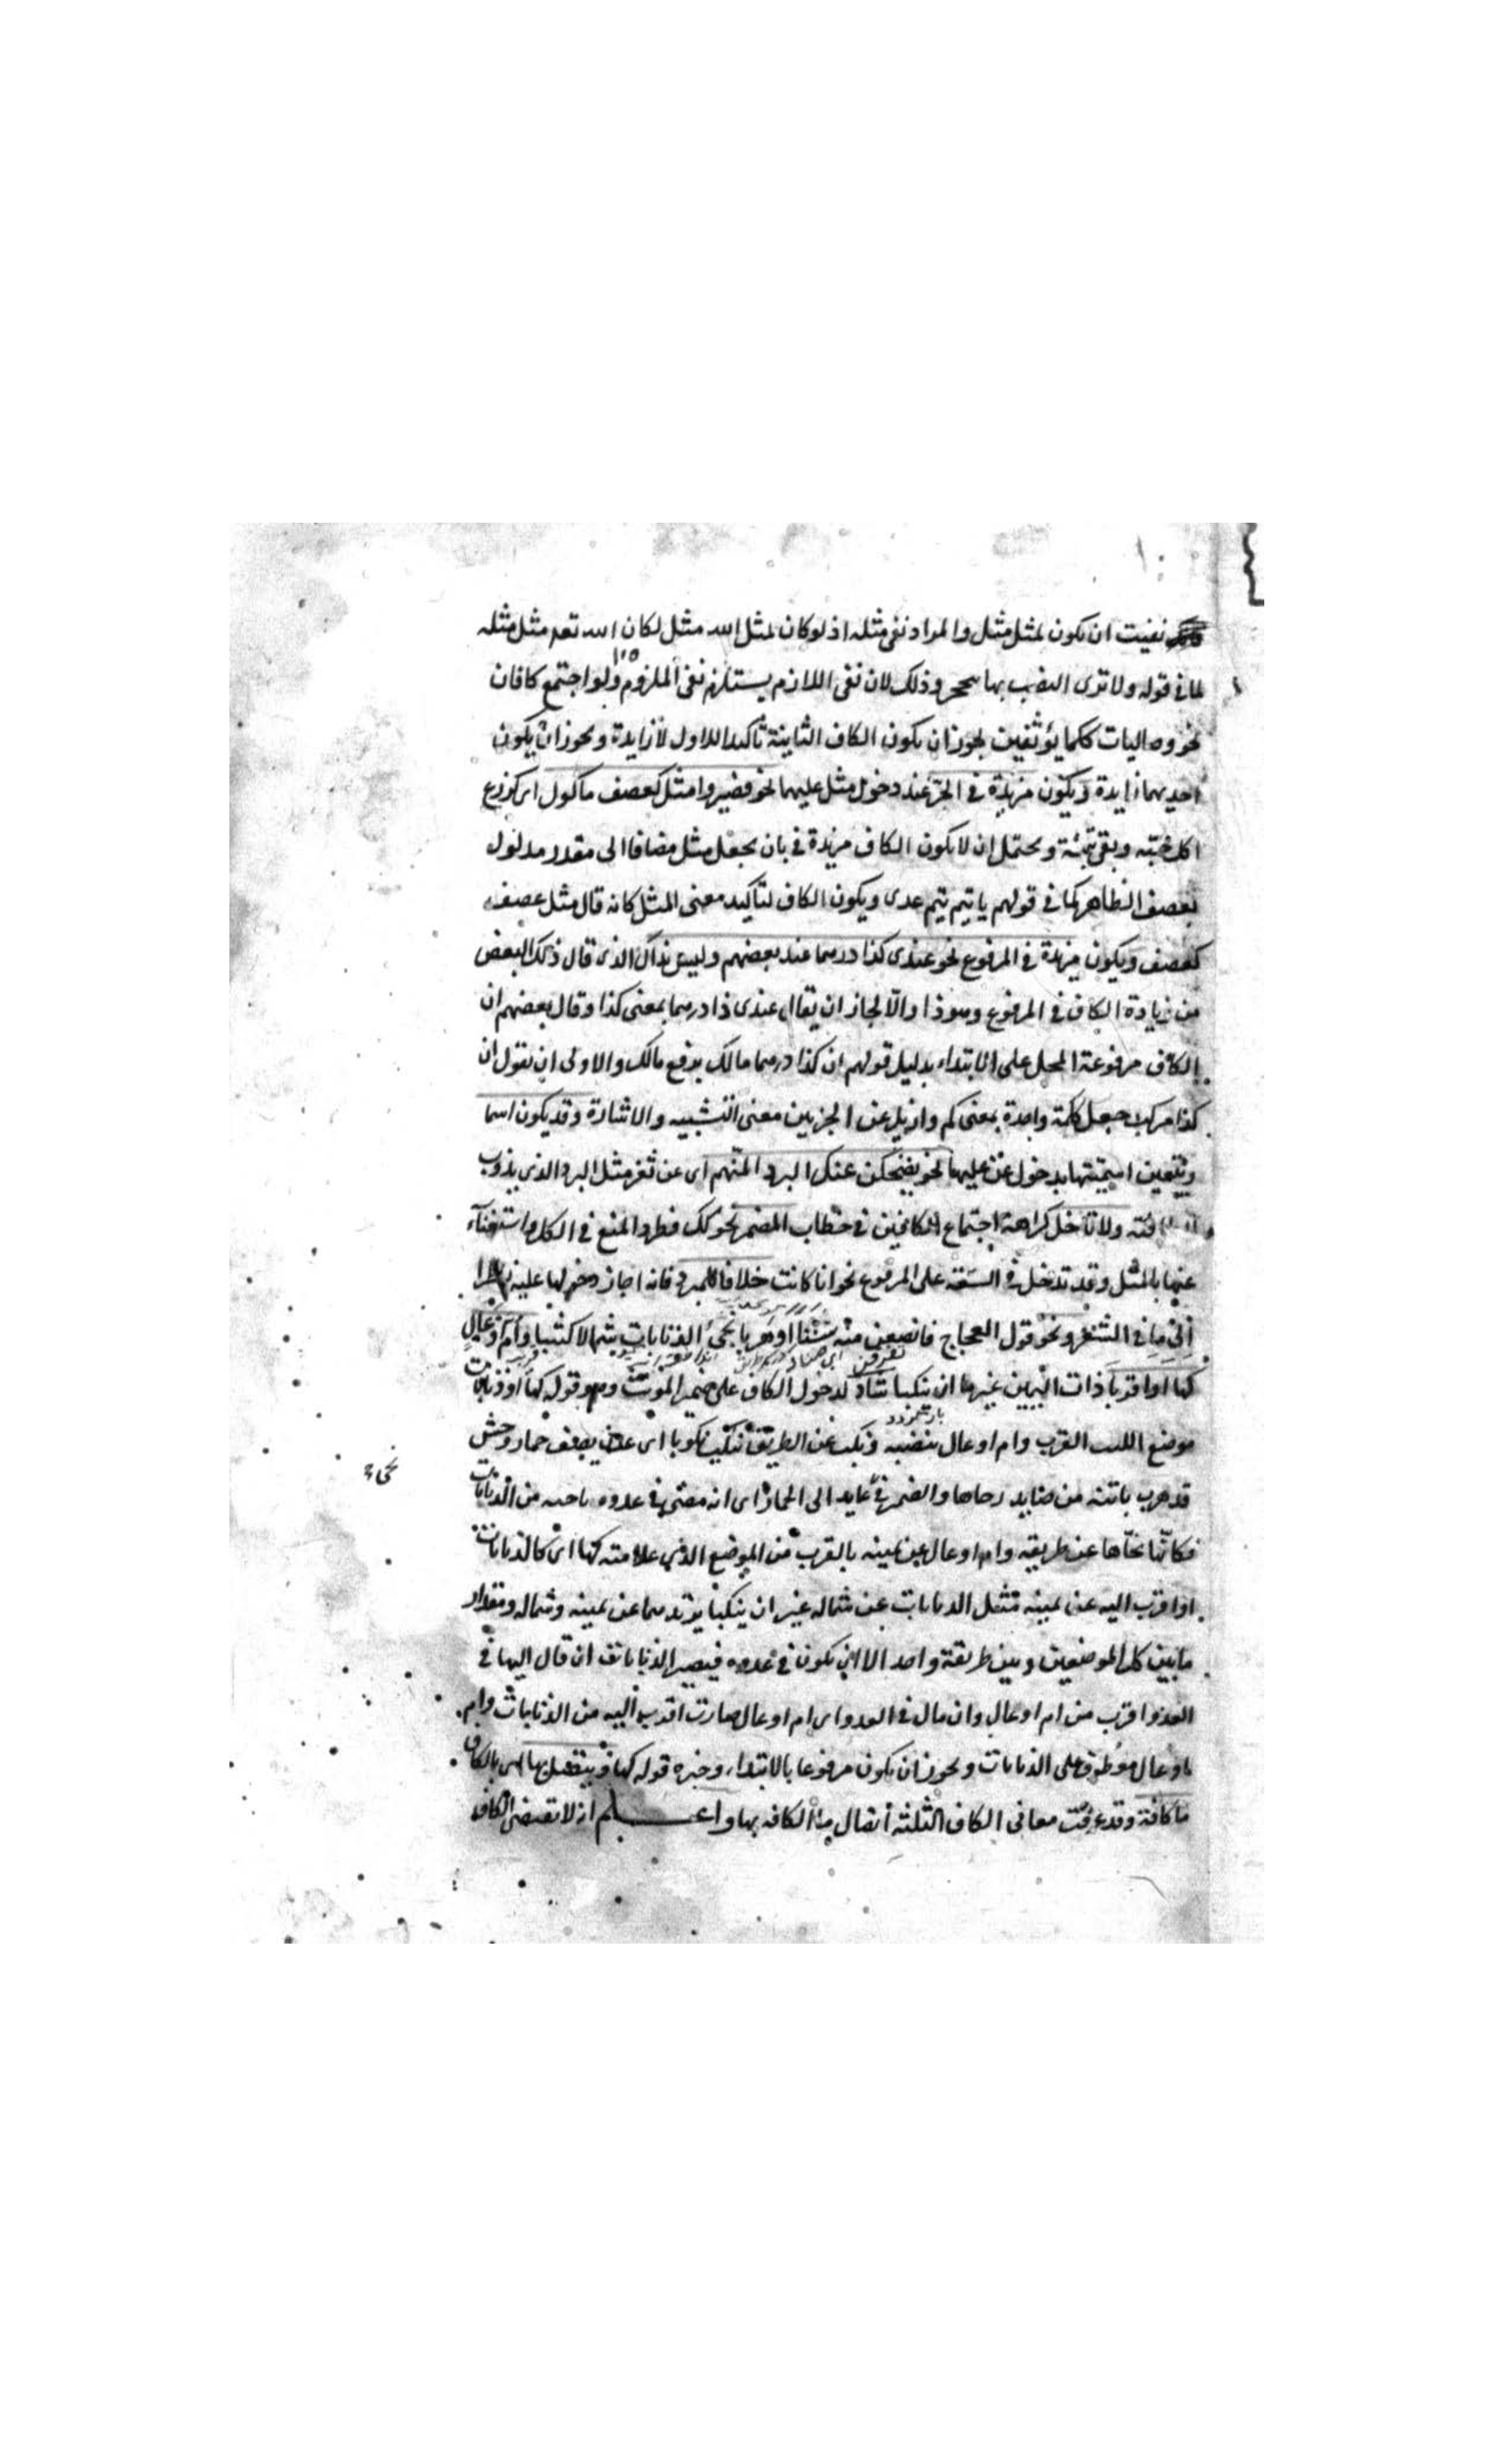 نفيت ان يكون لمثل مثل والمراد نفى مثله اذ لو كان لمثل الله مثل لكان الله تعه مثل مثله
لما فى قوله ولا ترى الضب بها ينجحر وذلك لان نفى اللازم يستلزم نفى الملزوم ولو اجتمع كافان
نحو وصاليات ككما يؤثفين يجوز ان يكون الكاف الثانية تأكيدا للاول لا زايدة ويجوز ان يكون
احديهما زايدة ويكون مزيدة فى الجر عند دخول مثل عليها نحو فصيروا مثل كعصف مأكول اى كزرع
اكل حبّه وبقى تبنه ويحتمل ان لا يكون الكاف مزيدة فى بان يجعل مثل مضافا الى مقدر مدلول
بعصف الظاهر كما فى قولهم يا تيم تيم عدى ويكون الكاف لتأكيد معنى المثل كانه قال مثل عصف
كعصف ويكون مزيدة فى المرفوع نحو عندى كذا درهما عند بعضهم وليس بذاك الذى قال ذلك البعض
من زيادة الكاف فى المرفوع وهو ذا والّا لجاز ان يقال عندى ذا درهما بمعنى كذا وقال بعضهم ان
الكاف مرفوعة المحل على الابتداء بدليل قولهم ان كذا درهما مالك برفع مالك والاولى ان نقول ان
كذا مركب جعل كلمة واحدة بمعنى كم وازيل عن الجزئين معنى التشبيه والاشارة وقد يكون اسما
ويتعين اسميّتها بدخول عن عليها نحو يضحكن عن كالبرد المنهم اى عن ثغر مثل البرد الذى يذوب
ولا تدخل كراهة اجتماع الكافين فى خطاب المضمر نحو كك فطرد المنع فى الكل واستغناء
عنها بالمثل وقد تدخل فى السعة على المرفوع نحو انا كانت خلافا للمبرد فانه اجاز دخولها عليه
فى الشعر ونحو قول العجاج نحّى الذنابات شمالا كثبا وام اوعال
كها او اقربا ذات اليمين غيرها ان ينكبا شاذ لدخول الكاف على ضمير المونث وهو قوله كها او ذنابات
موضع القرب وام اوعال بنصبه ونكب عن الطريق ينكب نكوبا اى عدل يصف حمار وحش
قد هرب من صايد والضمر فى عايد الى الحمار اى انه مضى فى عدوه ناحيه من الذنابات
فكانّما نحّاها عن طريقه وام اوعال عن يمينه بالقرب من الموضع الذى علامته كها اى كالذنابات
او اقرب اليه عن يمينه مثل الذنابات عن شماله غير ان ينكبا عن يمينه وشماله ومقدار
ما بين كل الموضعين وبين طريقة واحد الا ان يكون فى عدوه فيصير الذنابات ان قال اليها فى
العدو اقرب من ام اوعال وان مال فى العدو اى ام اوعال صارت اقرب اليه من الذنابات وام
اوعال معطوف على الذنابات ويجوز ان يكون مرفوعا بالابتداء وخبره قوله كها ويتصل بها اى بالكاف
ما كافة وقد عرفت معانى الكاف الثلثه اتصال ما الكافه بها واعلم